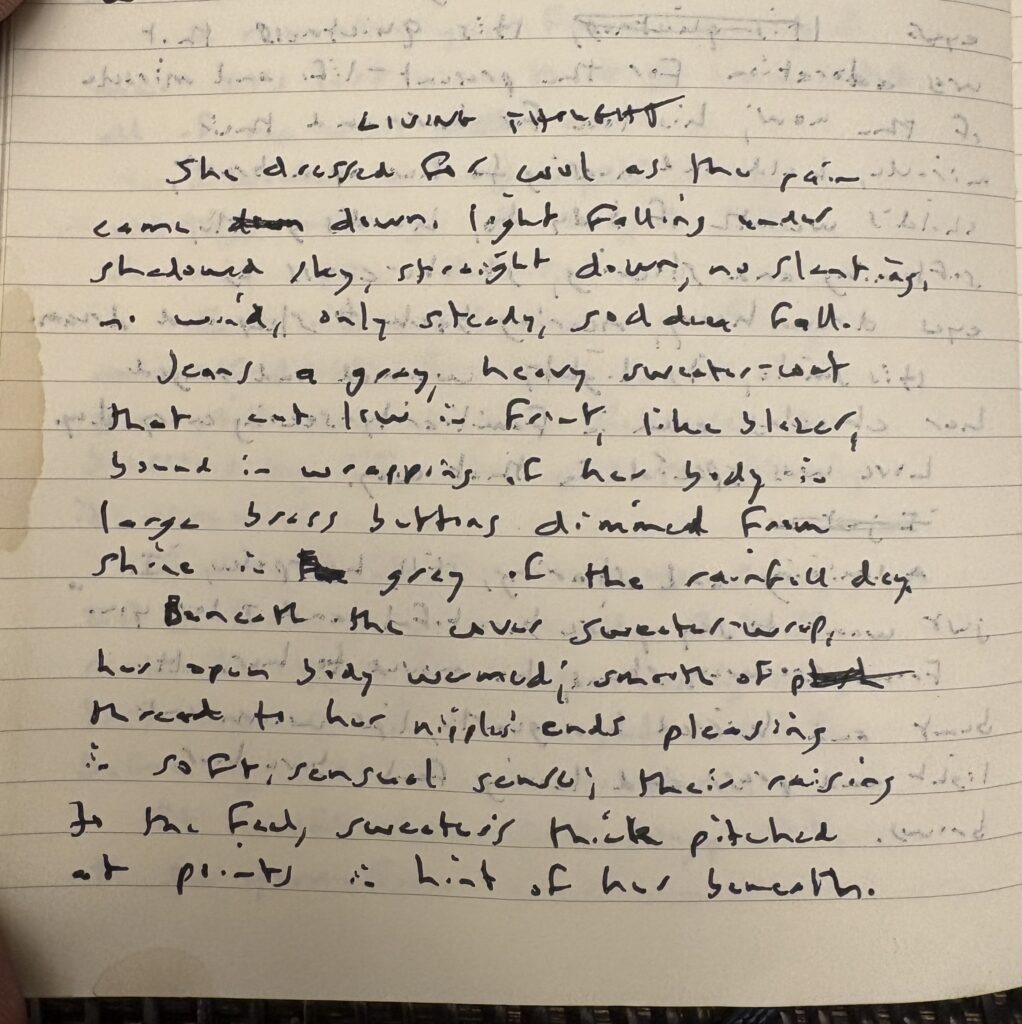 LIVING THOUGHT
She dressed for cool as the rain
came down. light falling under
shadowed sky, straight down, no slanting,
no wind, only steady, sodden fall.
Jeans a gray, heavy sweater-coat
that cut low in front, like blazer,
bound in wrapping of her body in
large brass buttons dimmed from
shine in gray of the rainfall day.
Beneath the cover sweater-wrap,
her open body warmed; smooth of
thread to her nipples' ends pleasing
in soft, sensual sense; their raising
to the feel, sweater's thick pitched
at points in hint of her beneath.